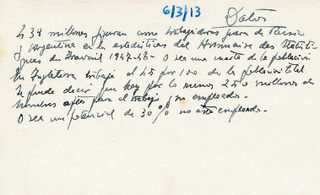 6/3/13
Datos
637 millones figuran como trabajadores fuera de Rusia
y Argentina en la estadística del Annuaire des Statisti-
ques du Travail 1947-48 - O sea una cuarta de la población
En Inglaterra trabaja el 45 por 100 de la población total
Se puede decir que hay por lo menos 250 millones de
hombres aptos para el trabajo y no empleados.
O sea un potencial de 30% no está empleado.